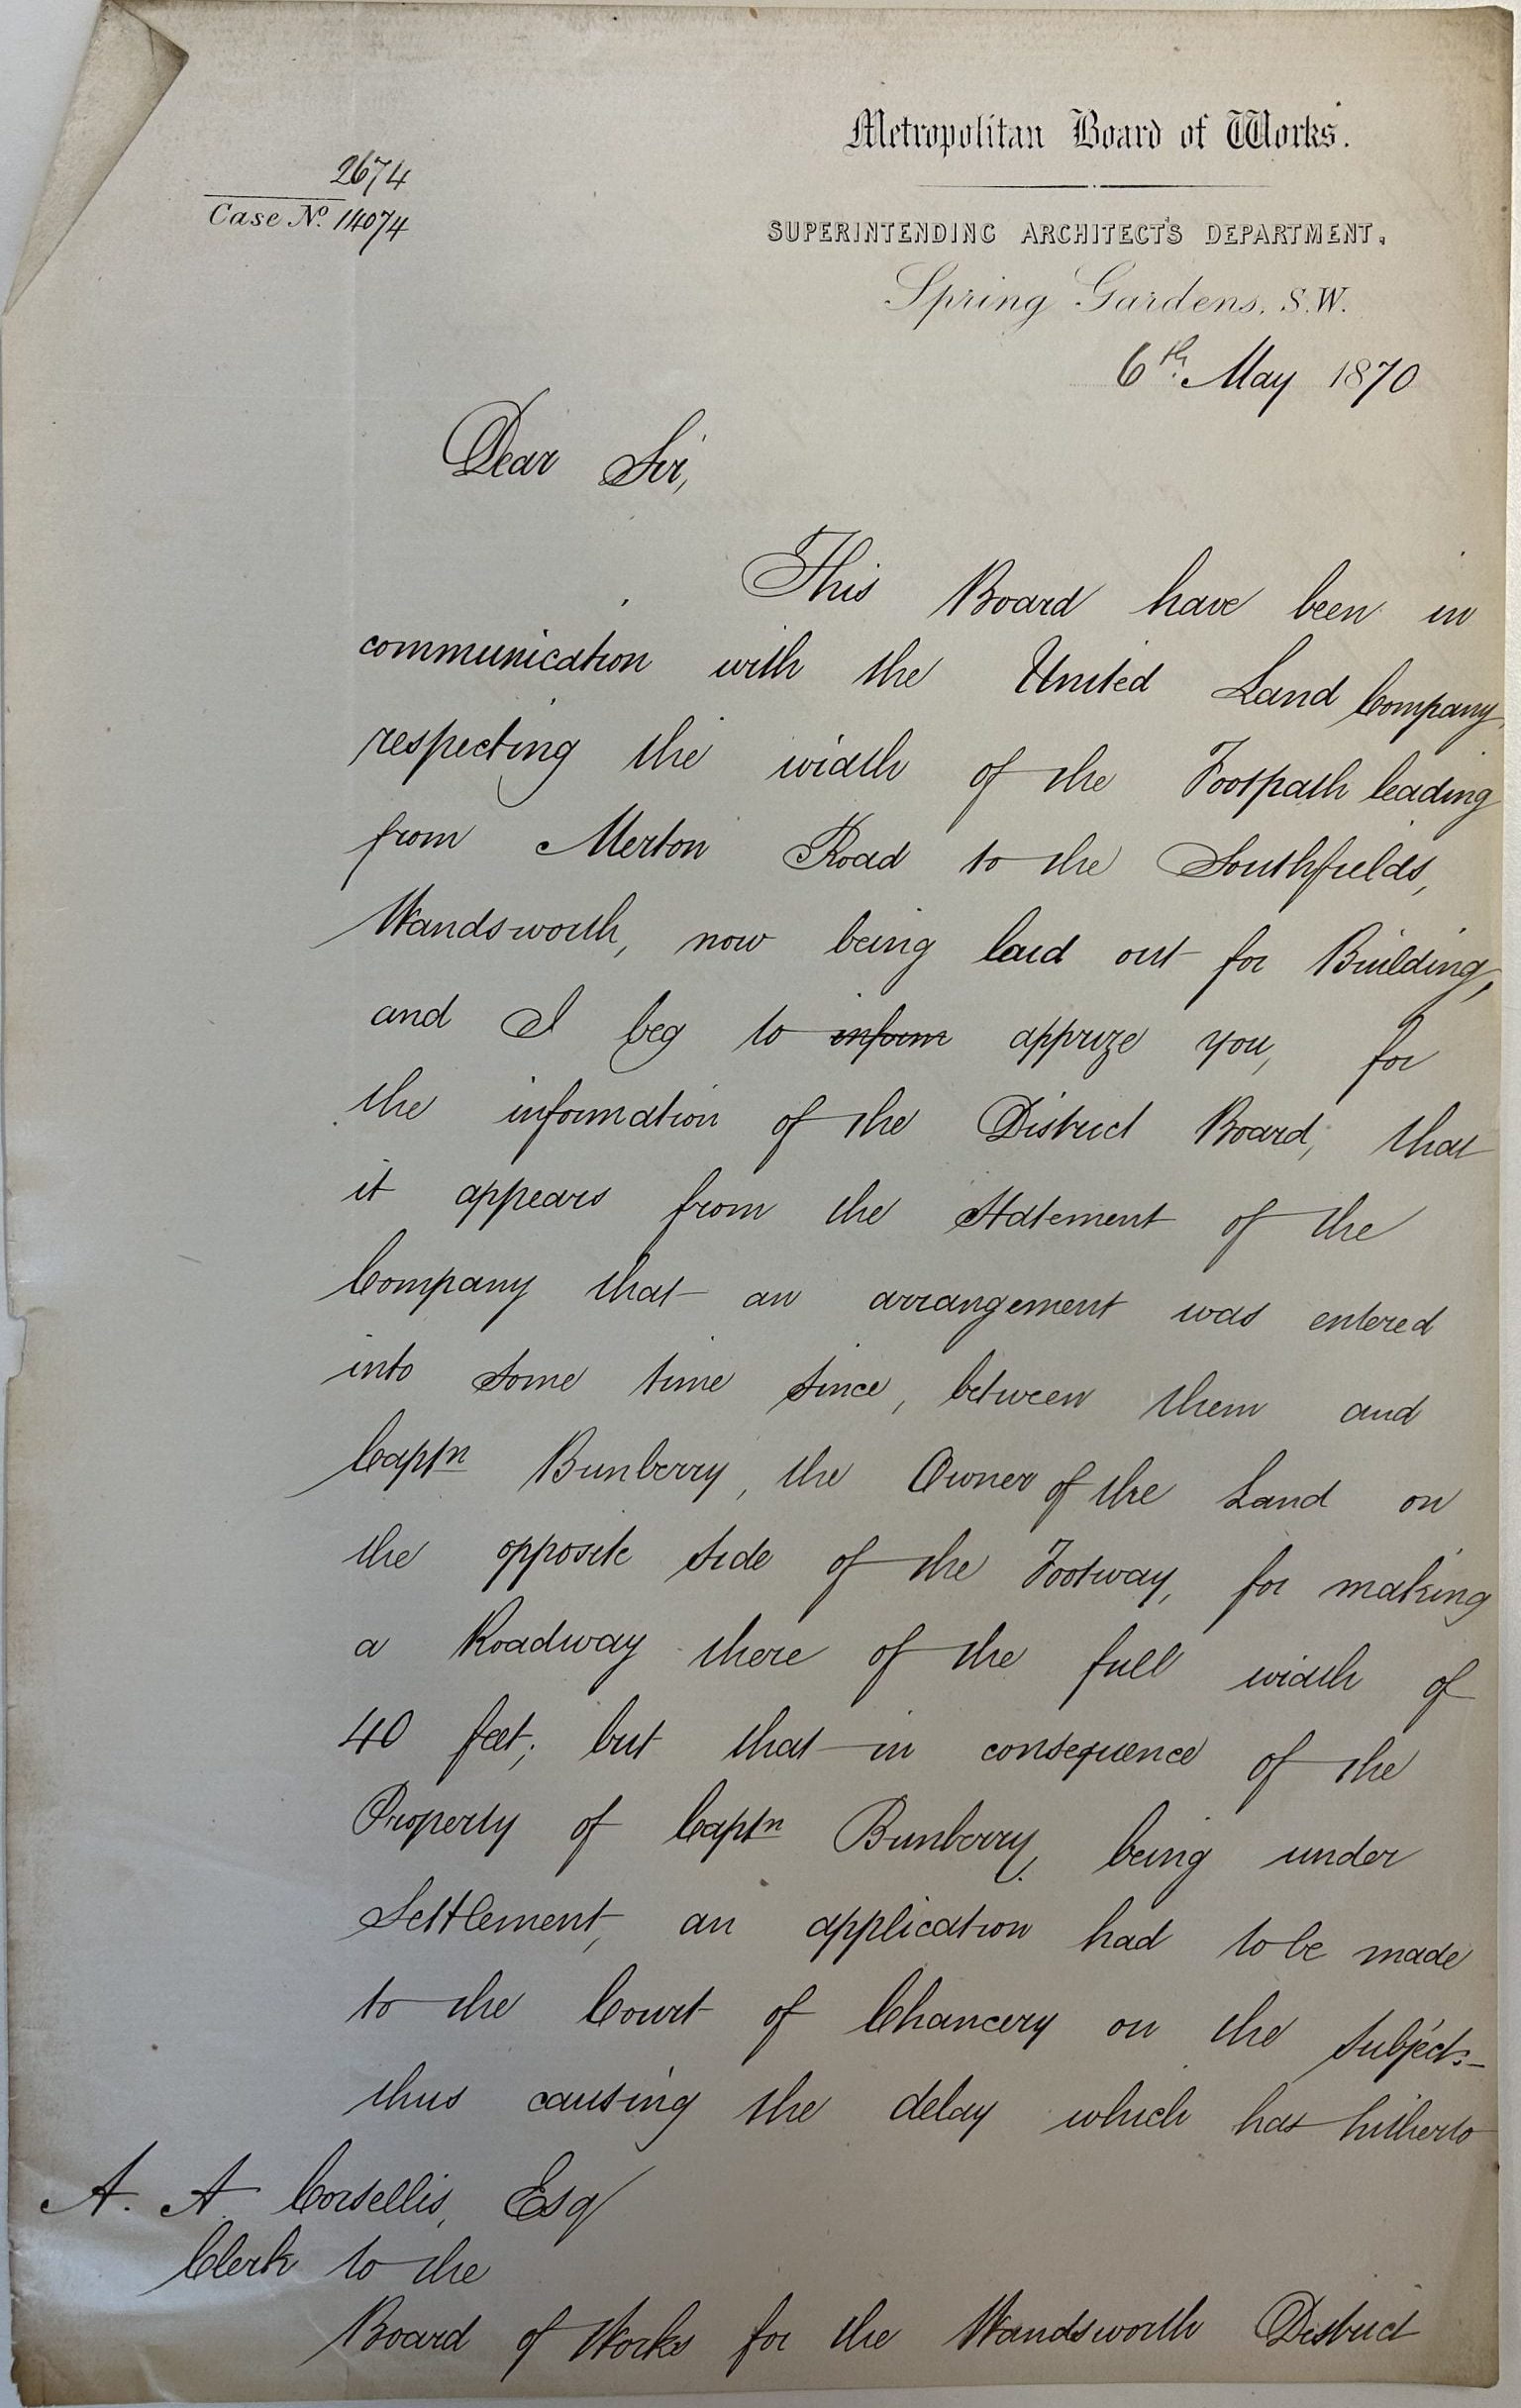 Metropolitan Board of Works.
2674
Case No. 14074
SUPERINTENDING ARCHITECT'S DEPARTMENT,
Spring Gardens, S.W.
6th. May 1870
Dear Sir,
This Board have been in
communication with the United Land Company,
respecting the width of the Footpath leading
from Merton Road to the Southfields,
Wandsworth, now being laid out for Building,
and I beg to inform apprize you, for
the information of the District Board, that
it appears from the Statement of the
Company that an arrangement was entered
into some time since, between them and
Captn Bunberry, the Owner of the Land on
the opposite side of the Footway, for making
a Roadway there of the full width of
40 feet; but that in consequence of the
Property of Captn Bunberry, being under
Settlement, an application had to be made
to the Court of Chancery on the subject:—
thus causing the delay which has hitherto
A. A. Corsellis, Esq
Clerk to the
Board of Works for the Wandsworth District